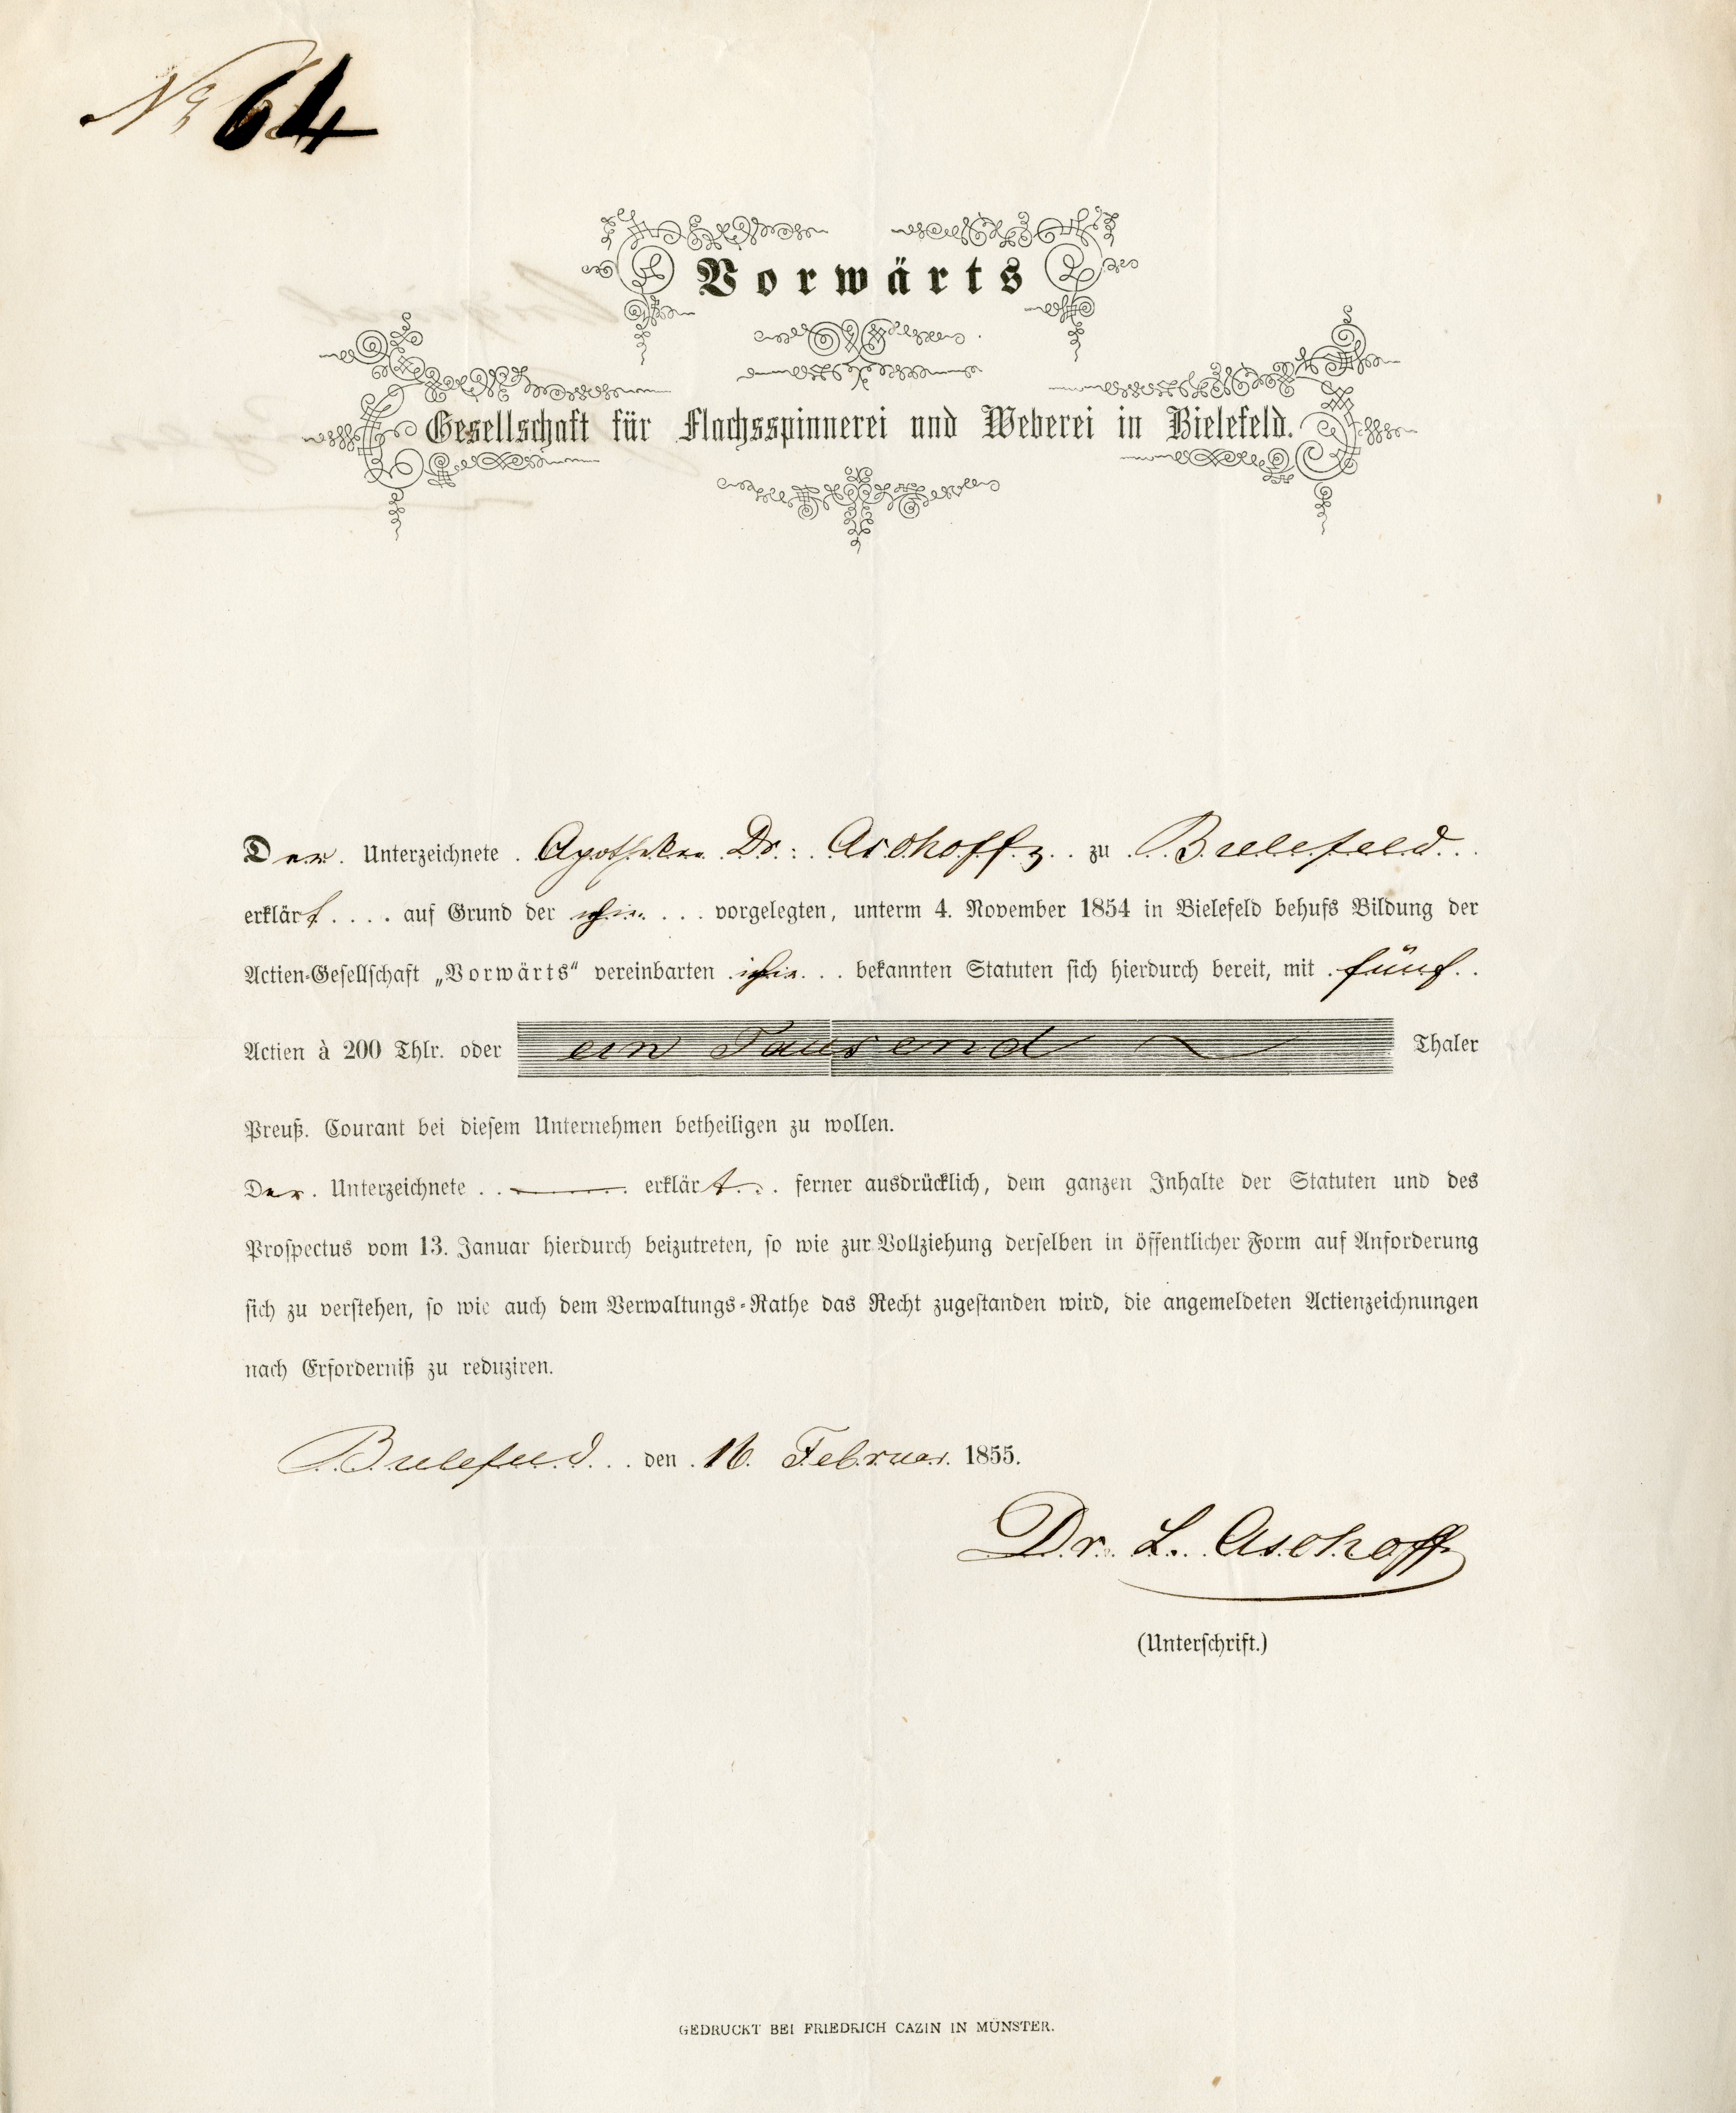 No 64
Vorwärts
Gesellschaft für Flachsspinnerei und Weberei in Bielefeld.
Der. Unterzeichnete . Apotheker Dr: Aschoff z. . zu . Bielefeld. . .
erklärt . . . . auf Grund der ihm . . . vorgelegten, unterm 4. November 1854 in Bielefeld behufs Bildung der
Actien-Gesellschaft „Vorwärts“ vereinbarten . ihm. . . bekannten Statuten sich hierdurch bereit, mit . fünf. .
Actien à 200 Thlr. oder ein Tausend Thaler
Preuß. Courant bei diesem Unternehmen betheiligen zu wollen.
Der. Unterzeichnete . . ——— erklärt. . . ferner ausdrücklich, dem ganzen Inhalte der Statuten und des
Prospectus vom 13. Januar hierdurch beizutreten, so wie zur Vollziehung derselben in öffentlicher Form auf Anforderung
sich zu verstehen, so wie auch dem Verwaltungs-Rathe das Recht zugestanden wird, die angemeldeten Actienzeichnungen
nach Erforderniß zu reduziren.
Bielefeld. . . den . 16. Februar. 1855.
Dr. L. Aschoff
(Unterschrift.)
GEDRUCKT BEI FRIEDRICH CAZIN IN MÜNSTER.